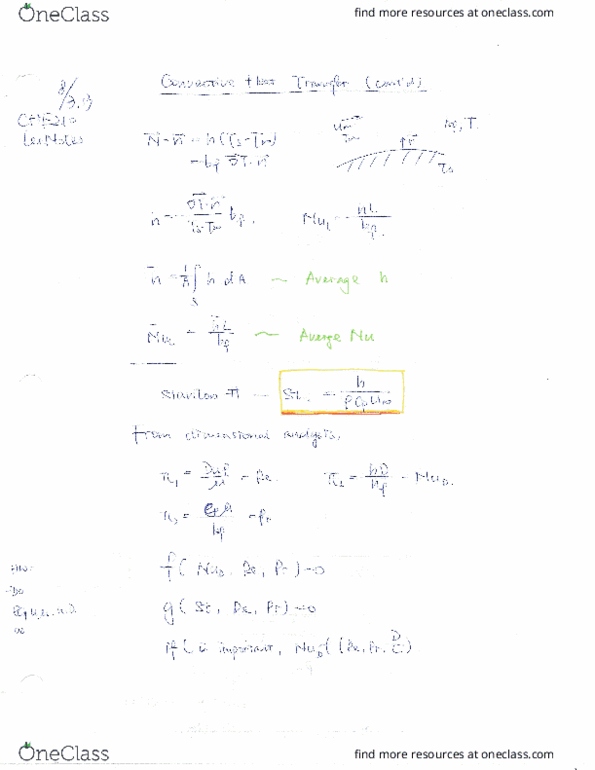 OneClass
find more resources at oneclass.com
Convective Heat Transfer (cont'd)
8/
Lec Notes
N·n = h(Ts-T∞)
= -kf ∇T·n
U∞ T∞
n
Ts
h = -∇T·n / Ts-T∞ kf.
NuL = hL/kf
h̄ = 1/A ∫ h dA ~ Average h
S
N̄uL = h̄L/kf ~ Average Nu
St. = h/ρCpU∞
From dimensional analysis,
π1 = Duρ/μ = Re
π2 = hD/kf = NuD.
π3 = Cpμ/kf = Pr
HW:
Do
f( NuD, Re, Pr) = 0
g( St, Re, Pr) = 0
If L is important, NuD = f(Re, Pr, D/L)
OneClass
find more resources at oneclass.com